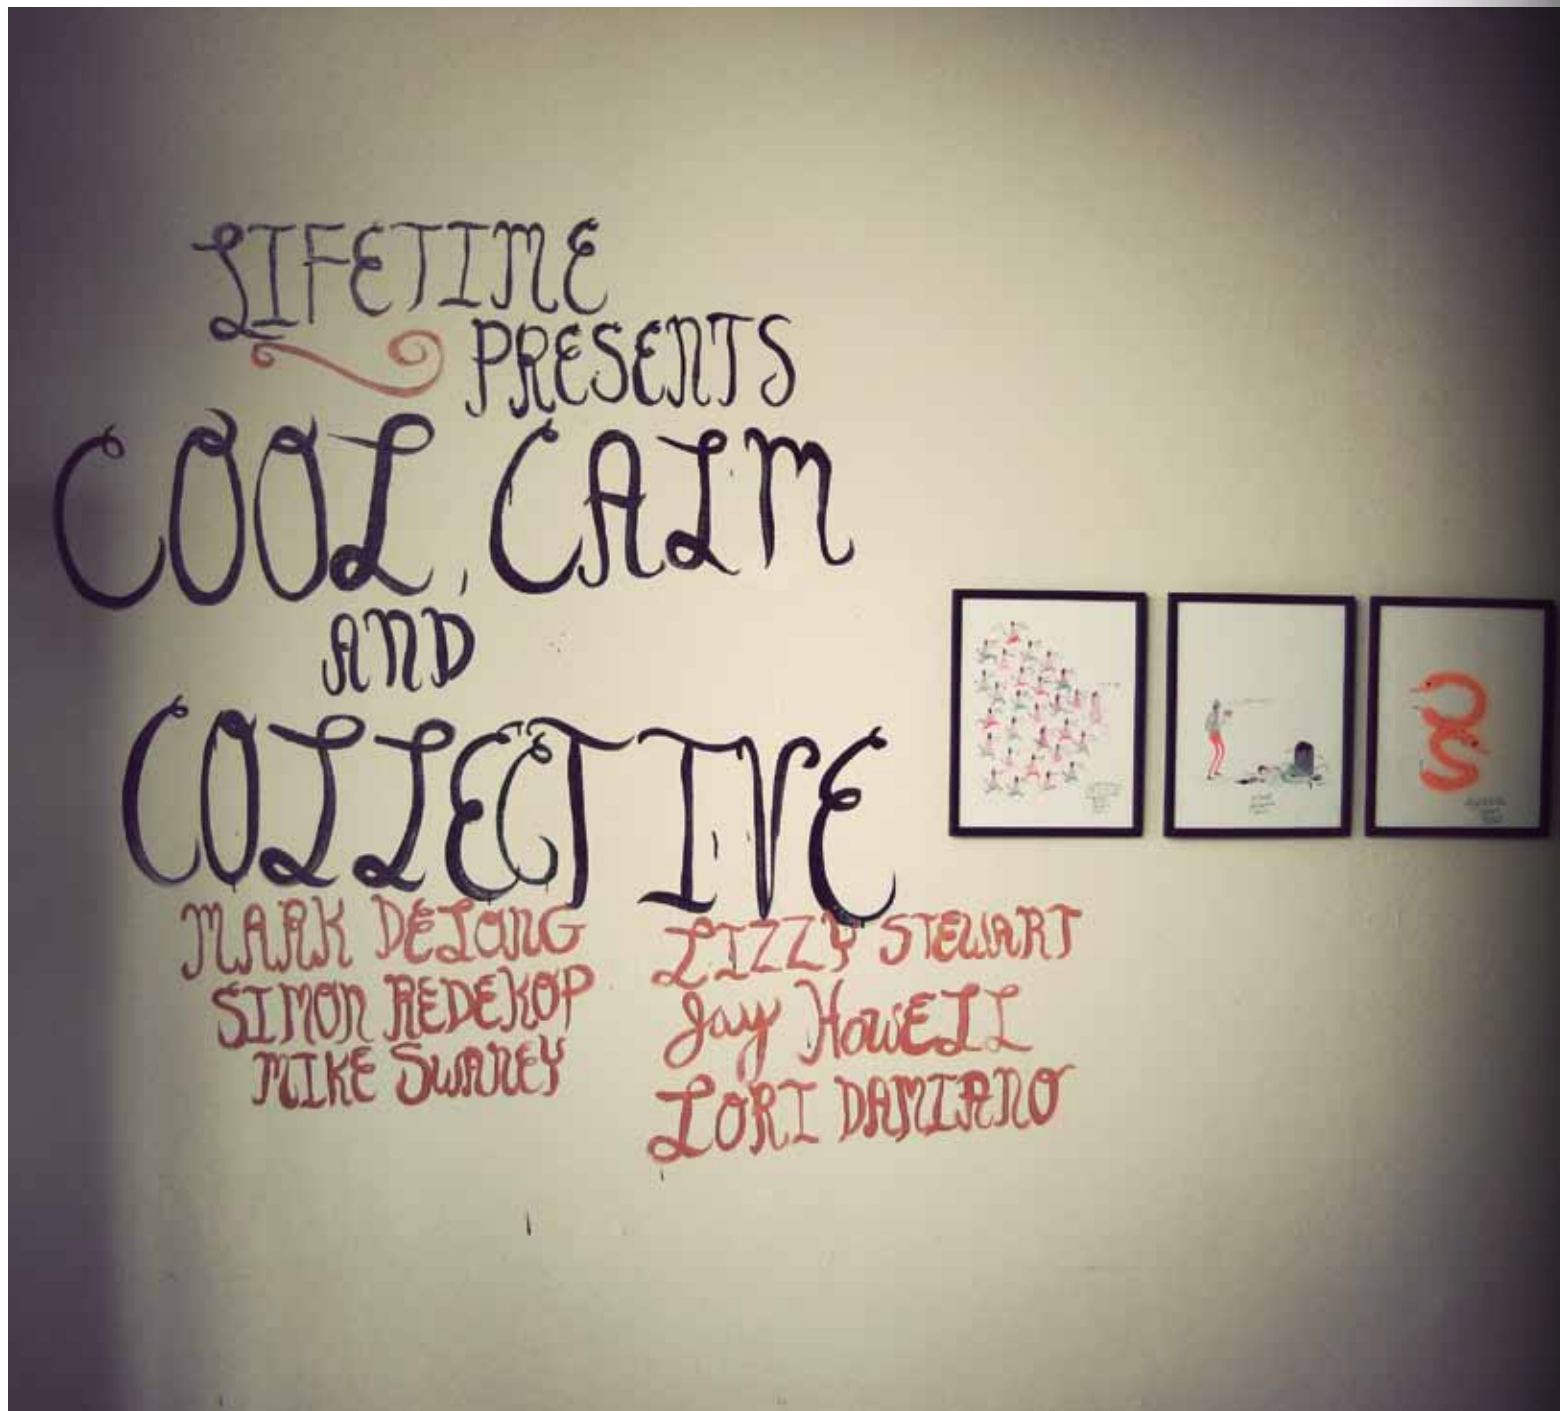 LIFETIME
PRESENTS
COOL, CALM
AND
COLLECTIVE
MARK DELONG
SIMON REDEKOP
MIKE SWANEY
LIZZY STEWART
Jay HOWELL
LORI DAMIANO